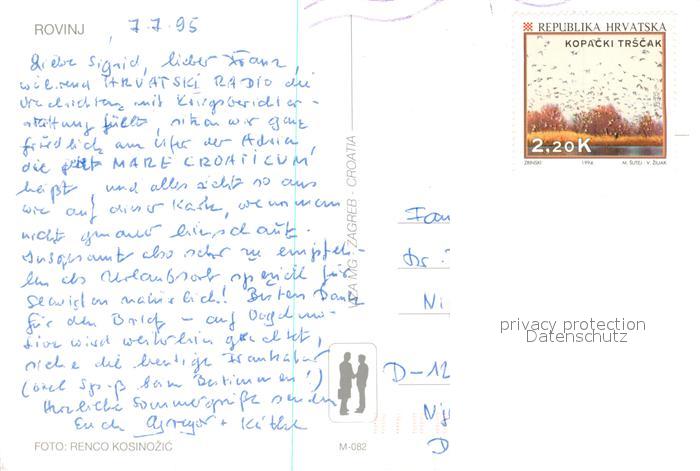 ROVINJ, 7.7.95
Liebe Sigrid, lieber Franz,
während HRVATSKI RADIO die
Nachrichten mit Kriegsberichter-
stattung füllt, sitzen wir ganz
friedlich am Ufer der Adria,
die jetzt MARE CROATICUM
heißt und alles sieht so aus
wie auf dieser Karte, wenn man
nicht genauer hinschaut.
Insgesamt also sehr zu empfeh-
len als Urlaubsort speziell für
natürlich! Besten Dank
für den Brief – auf
wird weiterhin geachtet,
siehe die heutige
(viel Spaß beim Bestimmen!)
Herzliche Sommergrüße senden
Euch Gregor + Käthe
FOTO: RENCO KOSINOŽIĆ
M-082
VIZA MG · ZAGREB · CROATIA
REPUBLIKA HRVATSKA
KOPAČKI TRŠČAK
2,20K
ZRINSKI 1994 M. ŠUTEJ · V. ŽILJAK
Fam
Dr.
Ni
D-12
D
privacy protection
Datenschutz